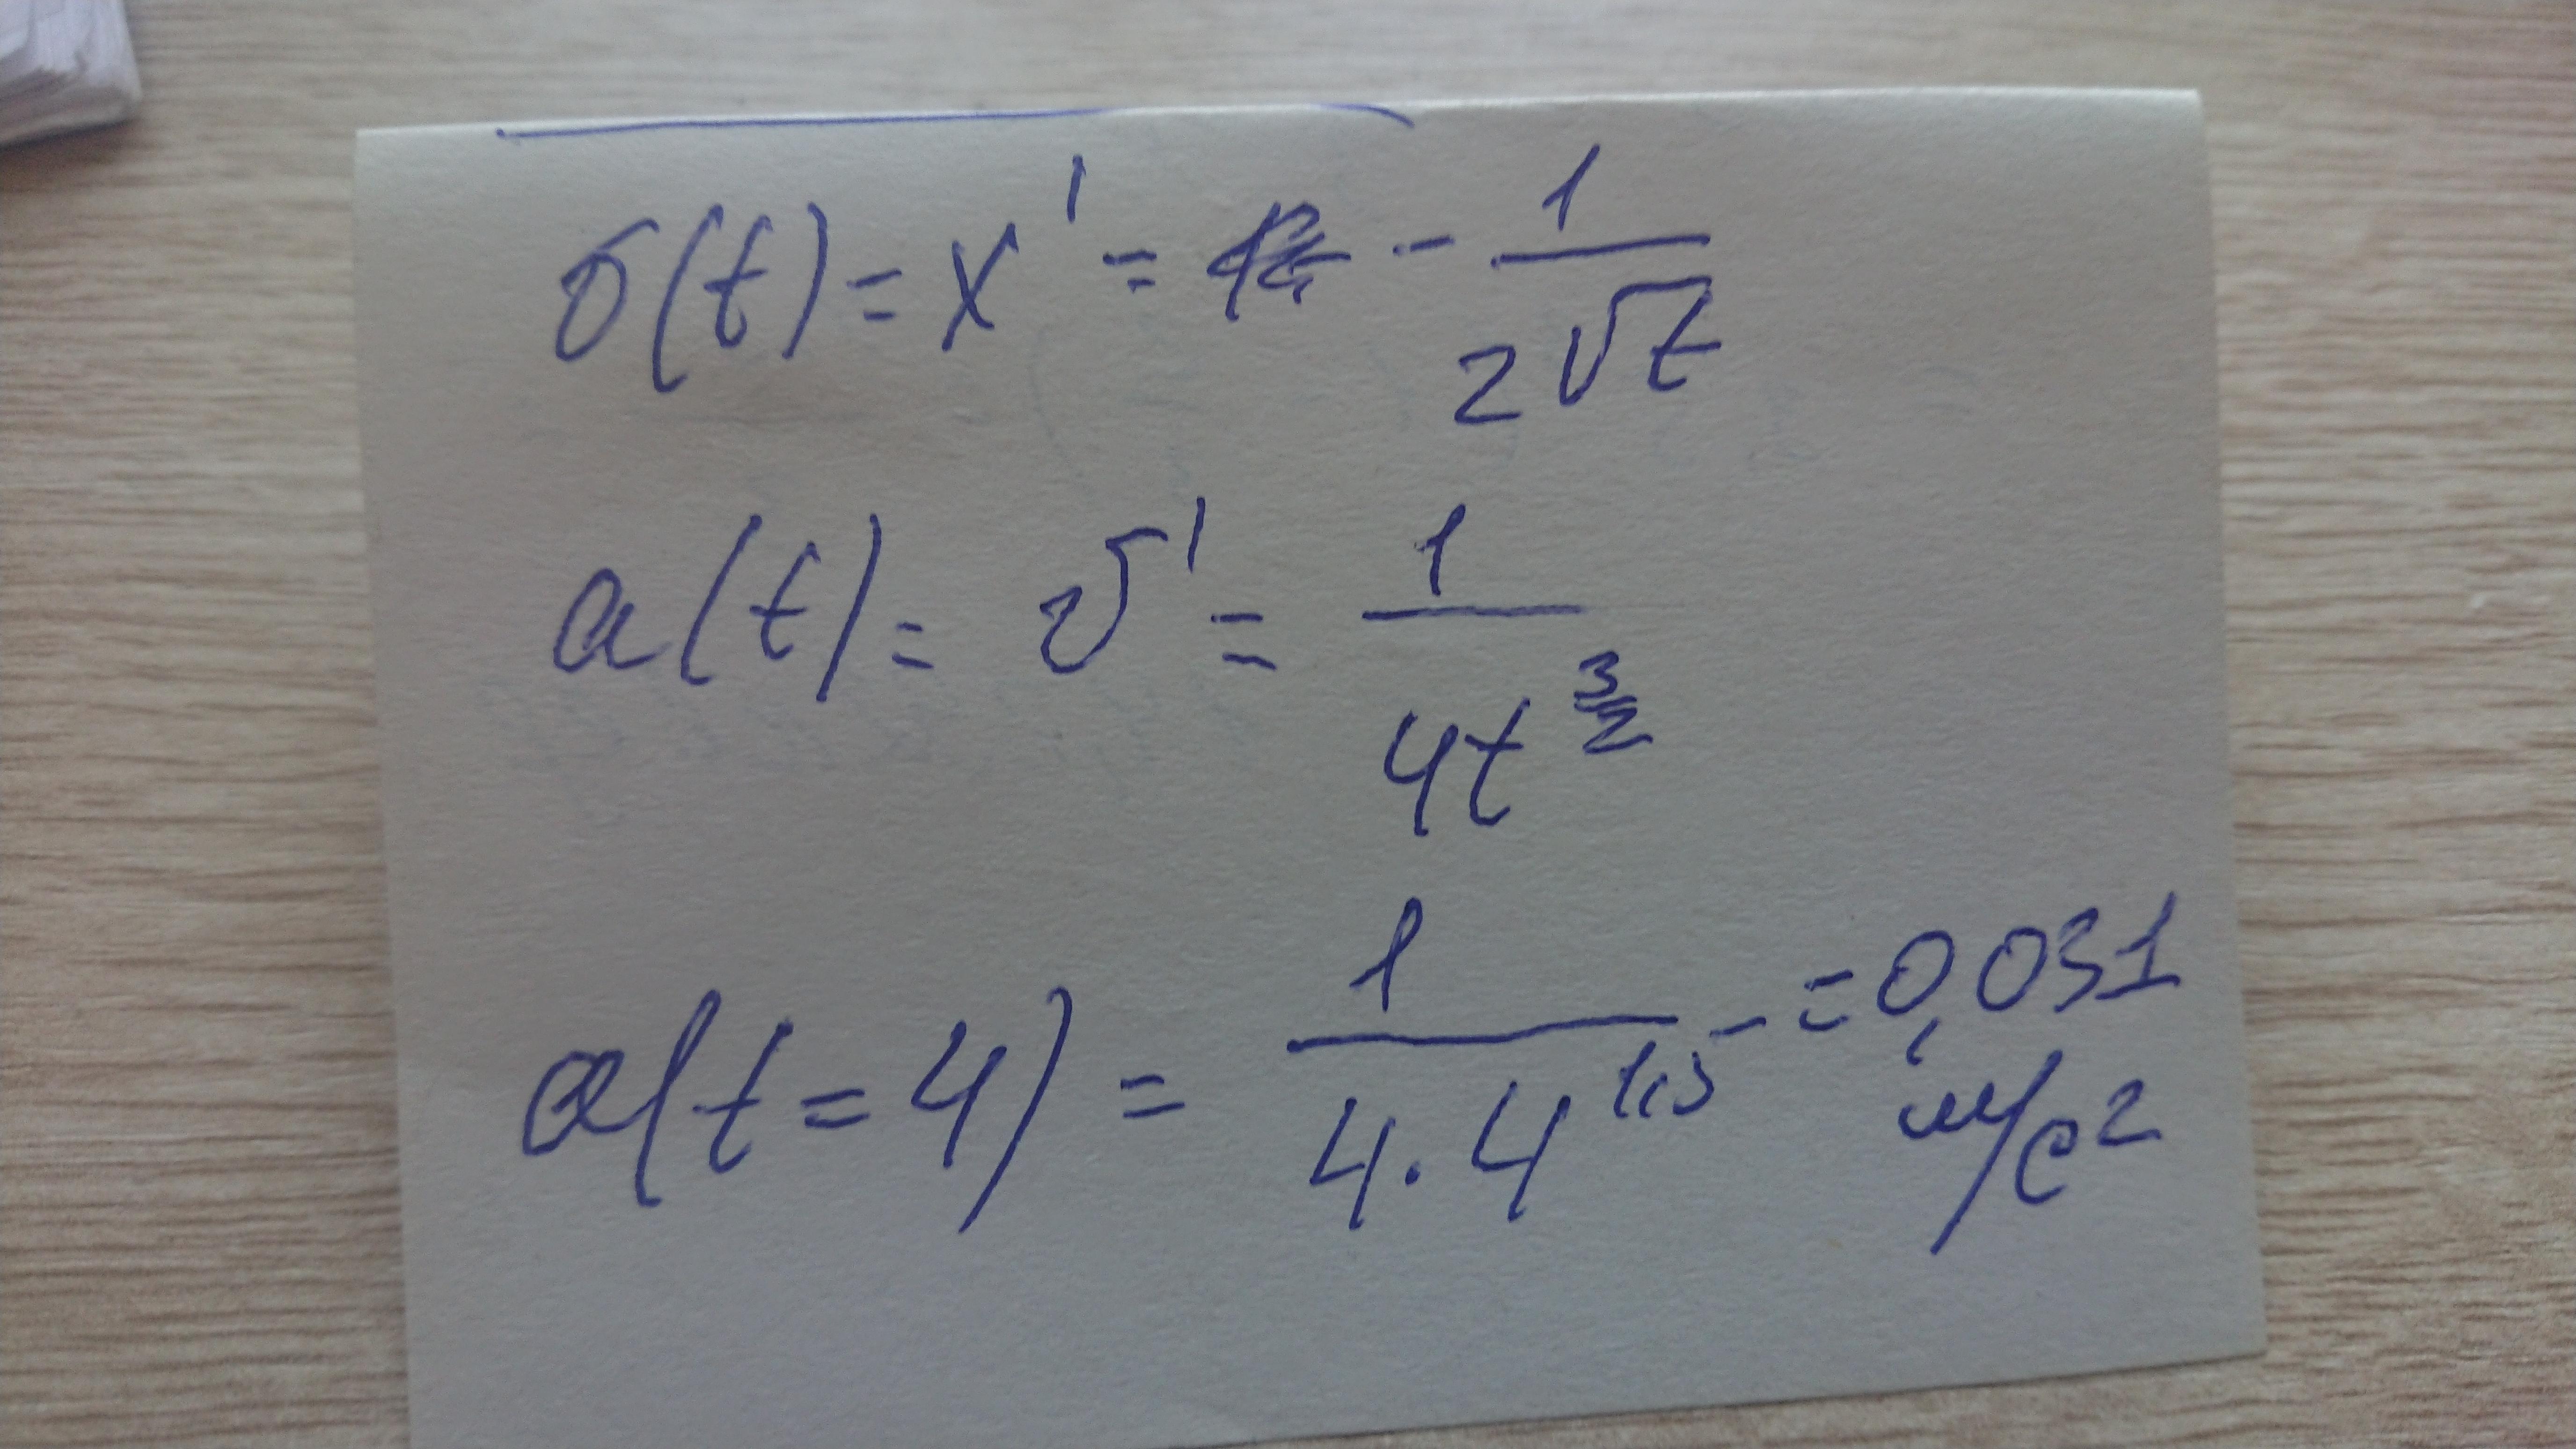 υ(t) = x' = - 1/(2√t)
a(t) = υ' = 1/(4t^(3/2))
a(t=4) = 1/(4·4^(1,5)) = 0,031 м/с²